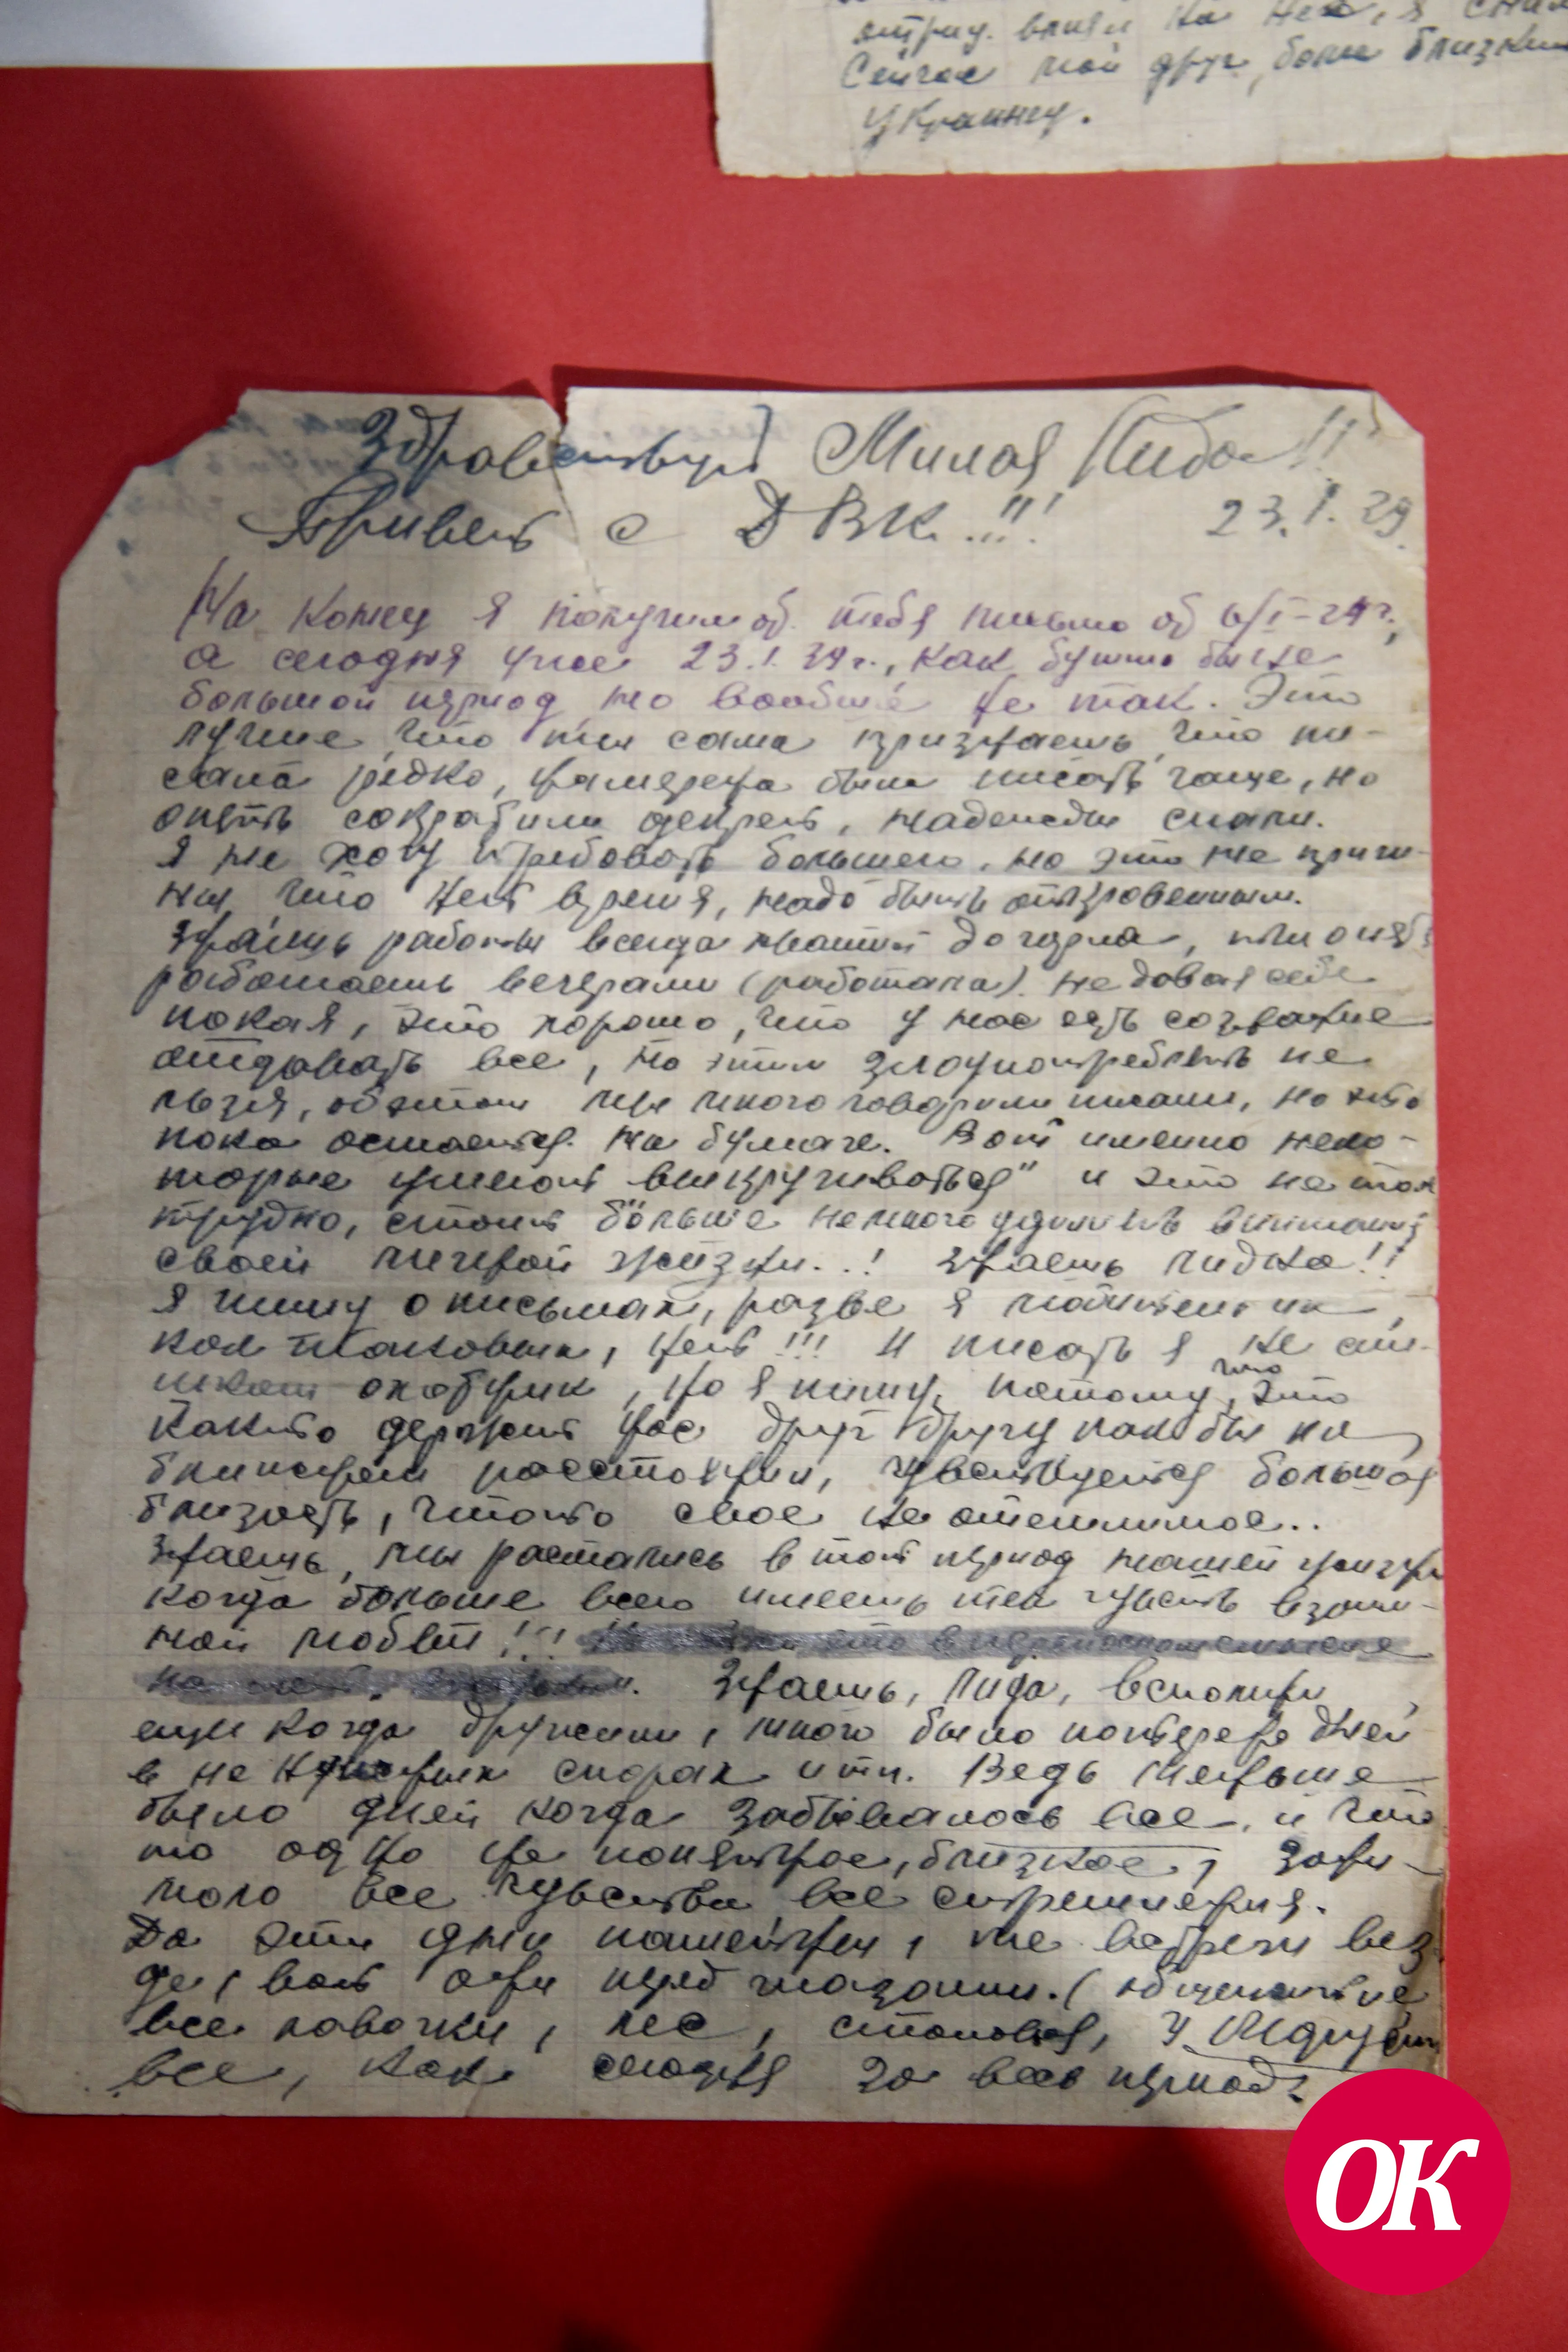 Сейчас мой друг, более близкий
Украину.
Здравствуй Милая Лида!!
Привет с ДВК..!!!
23.I.39.
На конец я получил от тебя письмо от 6/I-39 г.,
а сегодня уже 23.I.39 г., как будто бы не
большой период но вообще не так. Это
лучше что ты сама признаешь, что пи-
сала редко, намерена была писать чаще, но
опять надежды
Я не хочу требовать большего, но это не причи-
ны что нет время, надо быть откровенным.
Знаешь работы всегда хватит до чорта, ты опять
работаешь вечерами (работала) не давая себе
покая, это хорошо, что у нас есть сознание
отдавать все, но этим злоупотреблять не
льзя, об этом мы много говорили писали, но это
пока остается на бумаге. Вот именно неко-
торые умеют "выкручиваться" и это не так
трудно, стоит больше немного уделить внимания
своей личной жизни..! Знаешь Лидка!!
Я пишу о письмах, разве я
нет!!! И писать я не
но я пишу, потому что это
как то держит нас друг другу как бы на
ближнем расстоянии, чувствуется большая
близость, что то свое не отемлимое..
Знаешь, мы растались в тот период нашей жизни
когда больше всего имеешь тех чувств взаим-
ной любви!!!
Знаешь, Лида, вспомни
когда дружили, много было потеряно дней
в не нужных спорах и т.п. Ведь меньше
было дней когда забывалось все, и что
то одно не понятное, близкое, зани-
мало все чувства все стремления.
Да эти дни памятны, те встречи вез-
де, вот они перед глазами. (общежитие
все лавочки, лес, столовая, у
все, как сегодня за весь период
ОК